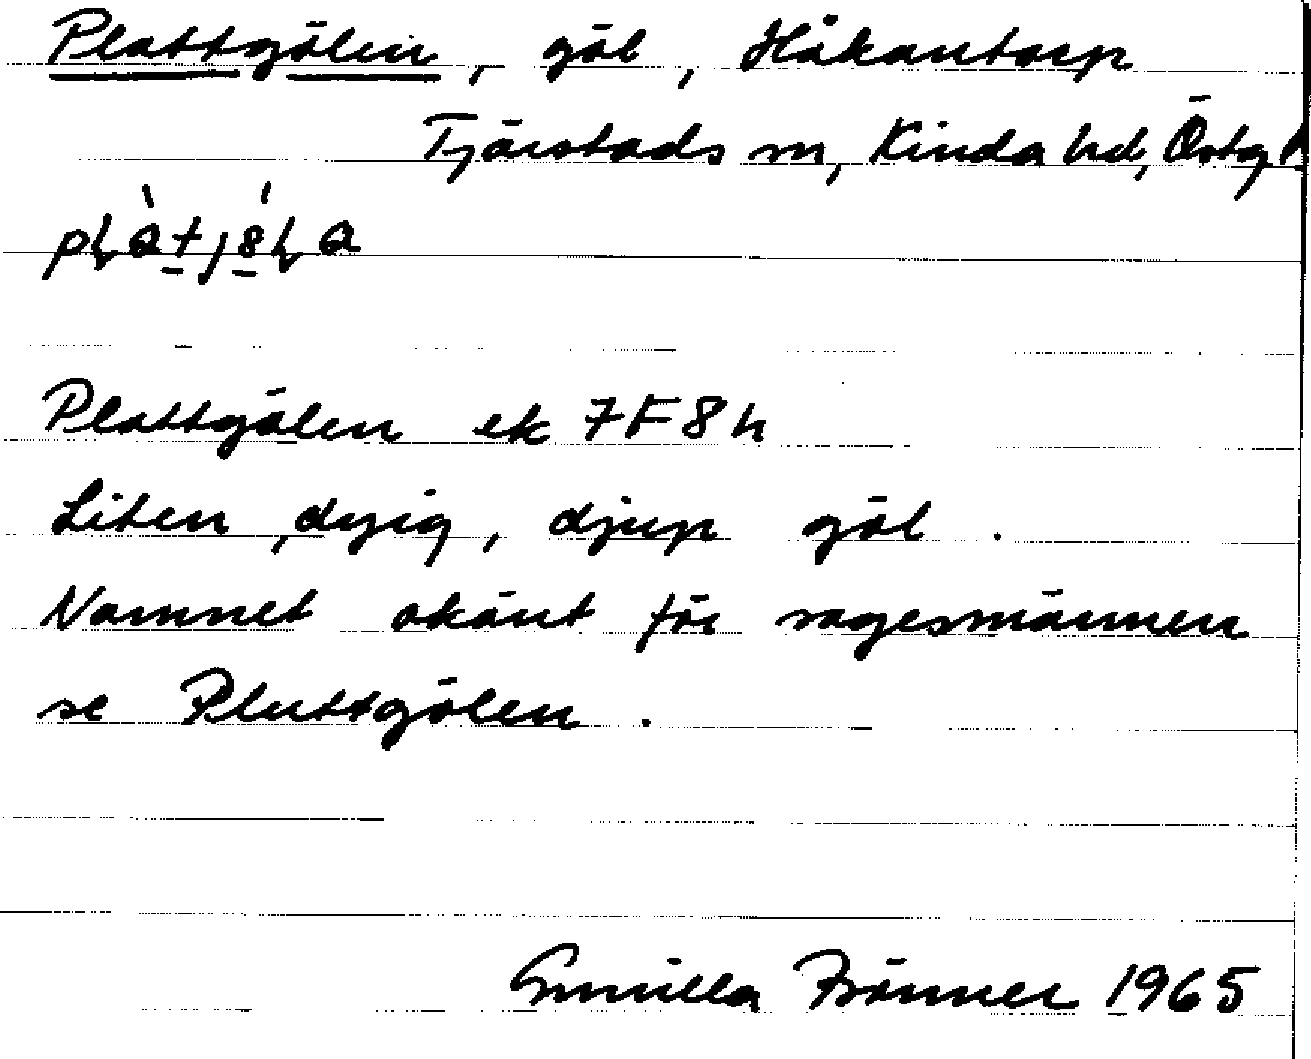 Plattgölen, göl, Håkantorp
Tjärstads sn, Kinda hd, Östg
Plattgölen ek 7F8h
Liten, dyig, djup göl.
Namnet okänt för sagesmännen
se Pluttgölen.
Gunilla 1965